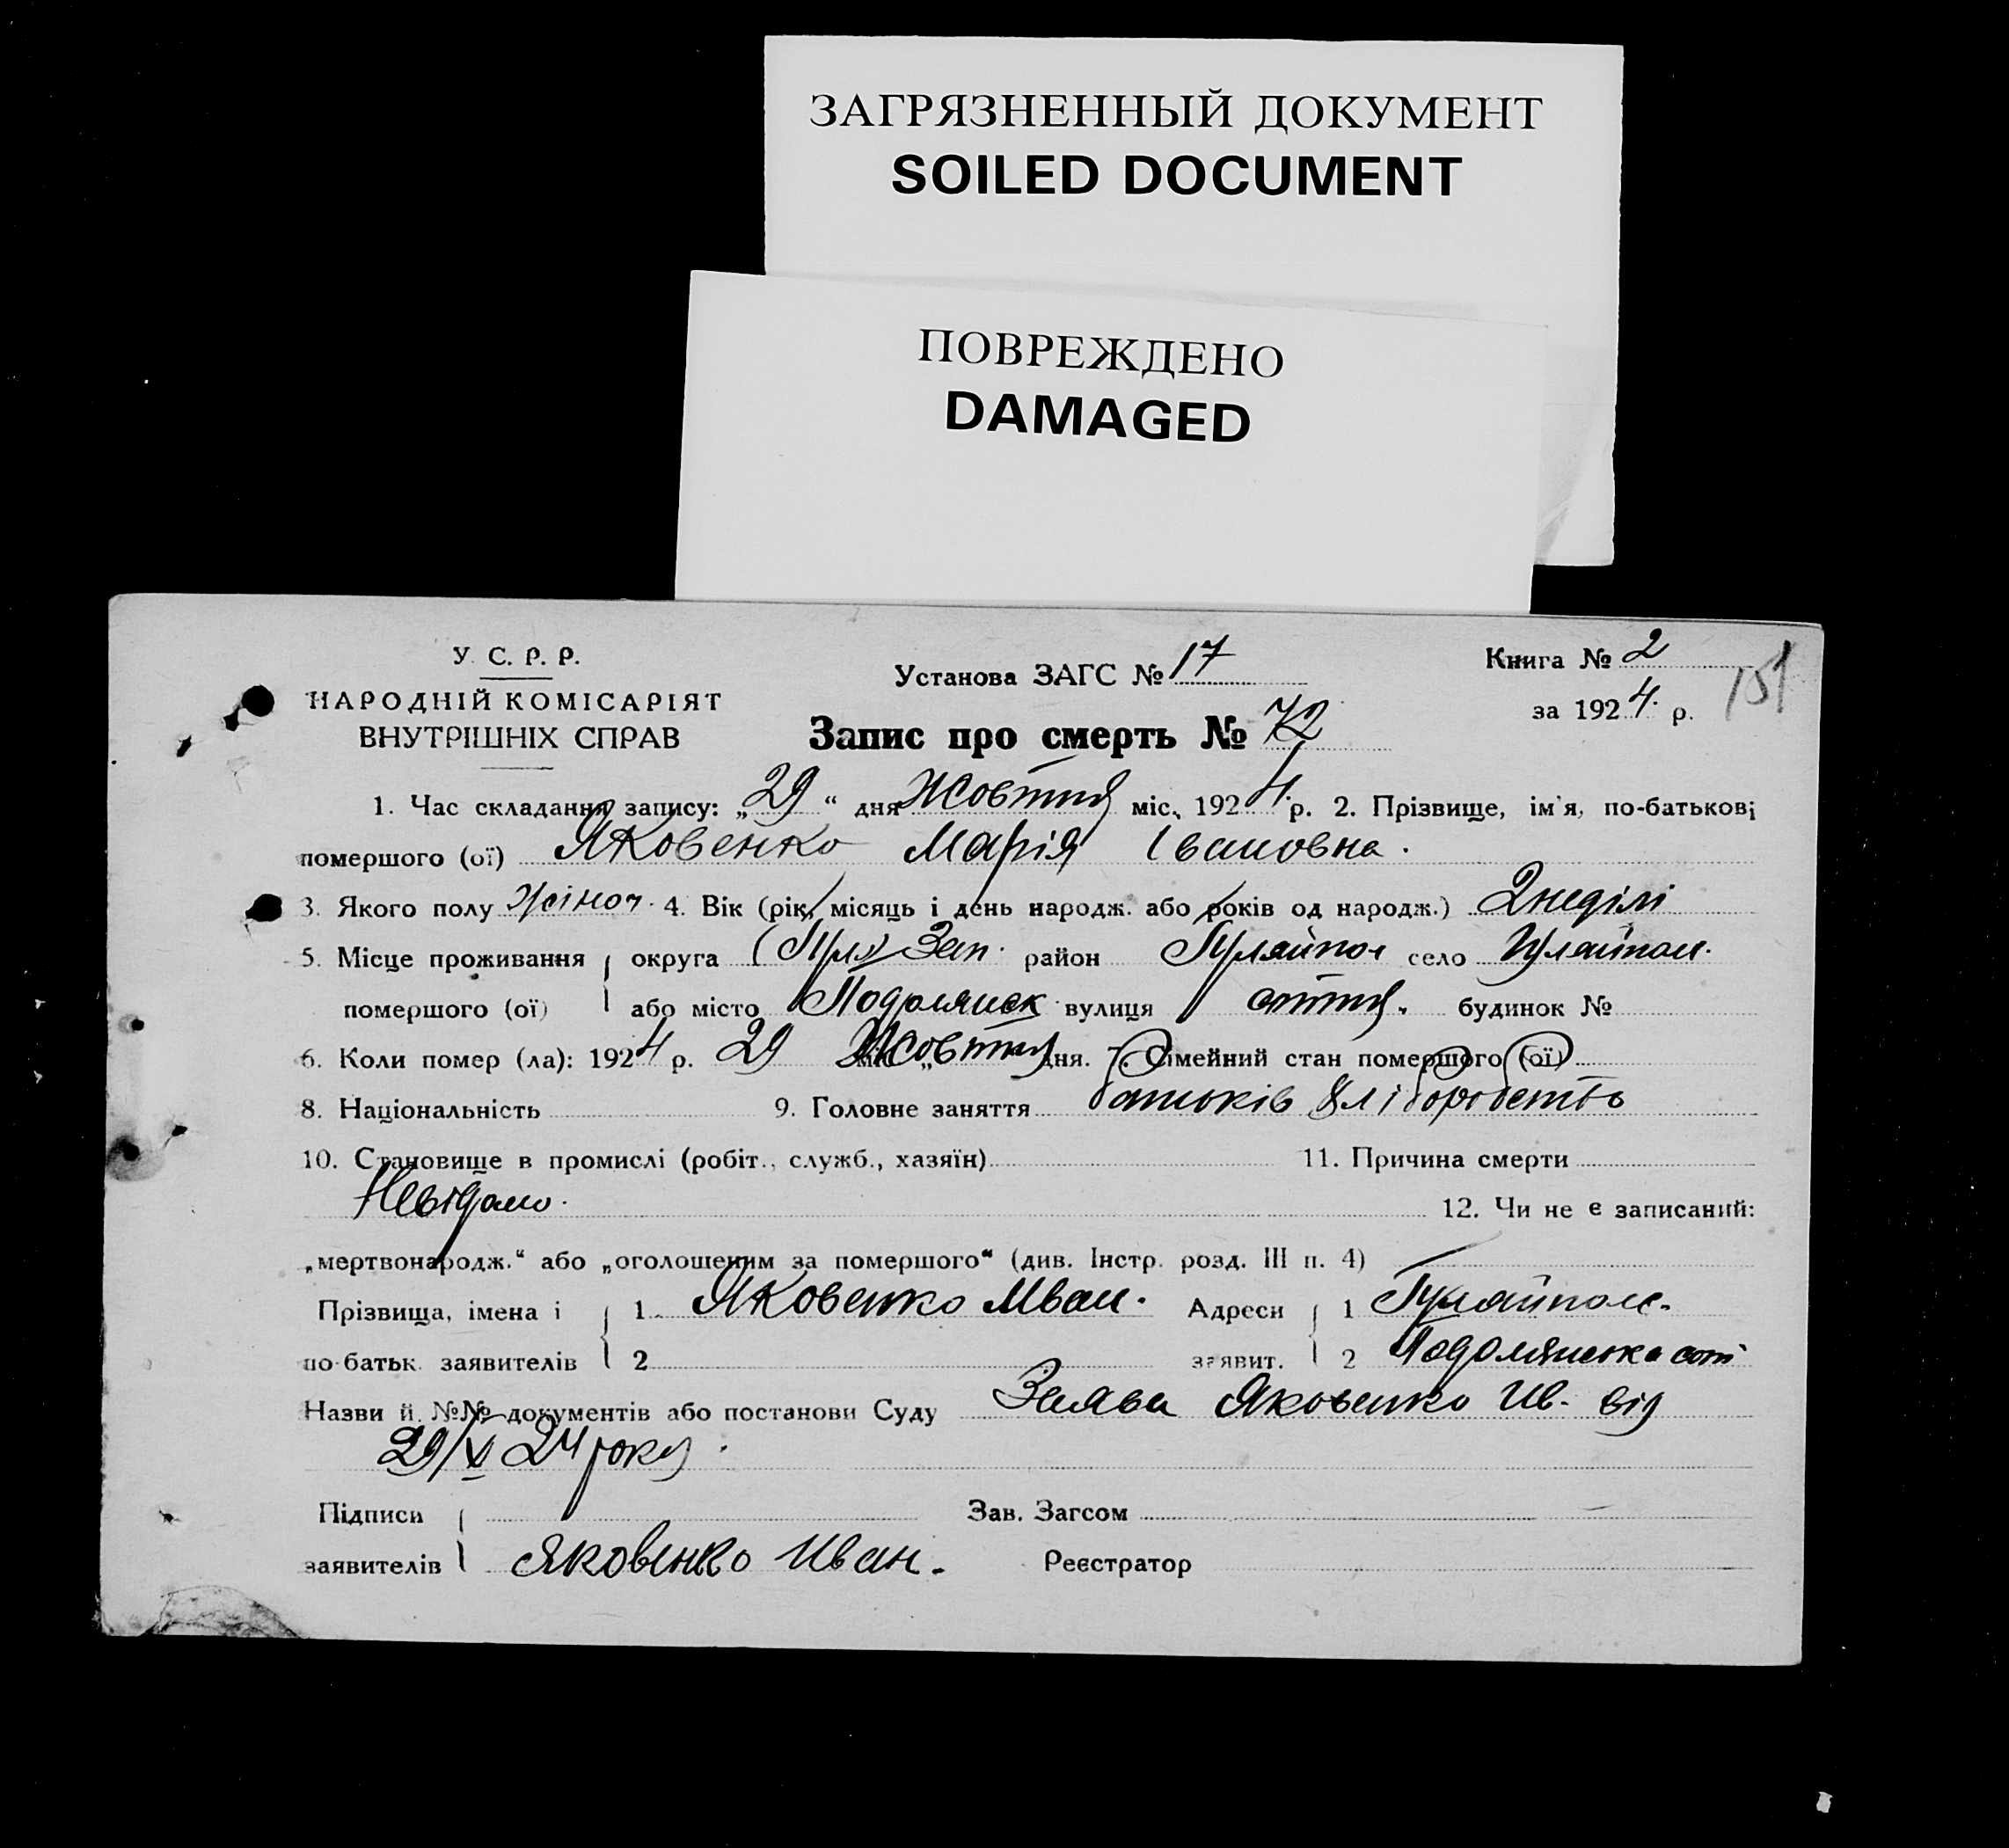 ЗАГРЯЗНЕННЫЙ ДОКУМЕНТ
SOILED DOCUMENT
ПОВРЕЖДЕНО
DAMAGED
У. С. Р. Р.
НАРОДНІЙ КОМІСАРІЯТ
ВНУТРІШНІХ СПРАВ
Установа ЗАГС № 17
Запис про смерть № 72
Книга № 2
за 1924 р.
151
1. Час складання запису: „29“ дня Жовтня міс. 1924 р. 2. Прізвище, ім'я, по-батькові
помершого (ої) Яковенко Марія Івановна.
3. Якого полу жіноч. 4. Вік (рік, місяць і день народж. або років од народж.) 2 неділі
5. Місце проживання округа Зап. район Гуляйпол село Гуляйпол.
помершого (ої) або місто Подолянськ вулиця сотня. будинок №
6. Коли помер (ла): 1924 р. 29 міс. „Жовтня дня. 7. Сімейний стан помершого (ої)
8. Національність 9. Головне заняття батьків хліборобство
10. Становище в промислі (робіт., служб., хазяїн) 11. Причина смерти
Невідомо. 12. Чи не є записаний:
„мертвонародж.“ або „оголошеним за помершого“ (див. Інстр. розд. III п. 4)
Прізвища, імена і 1 Яковенко Иван. Адреси 1 Гуляйполе.
по-батьк. заявителів 2 заявит. 2 Подолянська сот
Назви й №№ документів або постанови Суду Заява Яковенко Ив. від
29/X 24 року.
Підписи Зав. Загсом
заявителів Яковенко Иван. Реєстратор